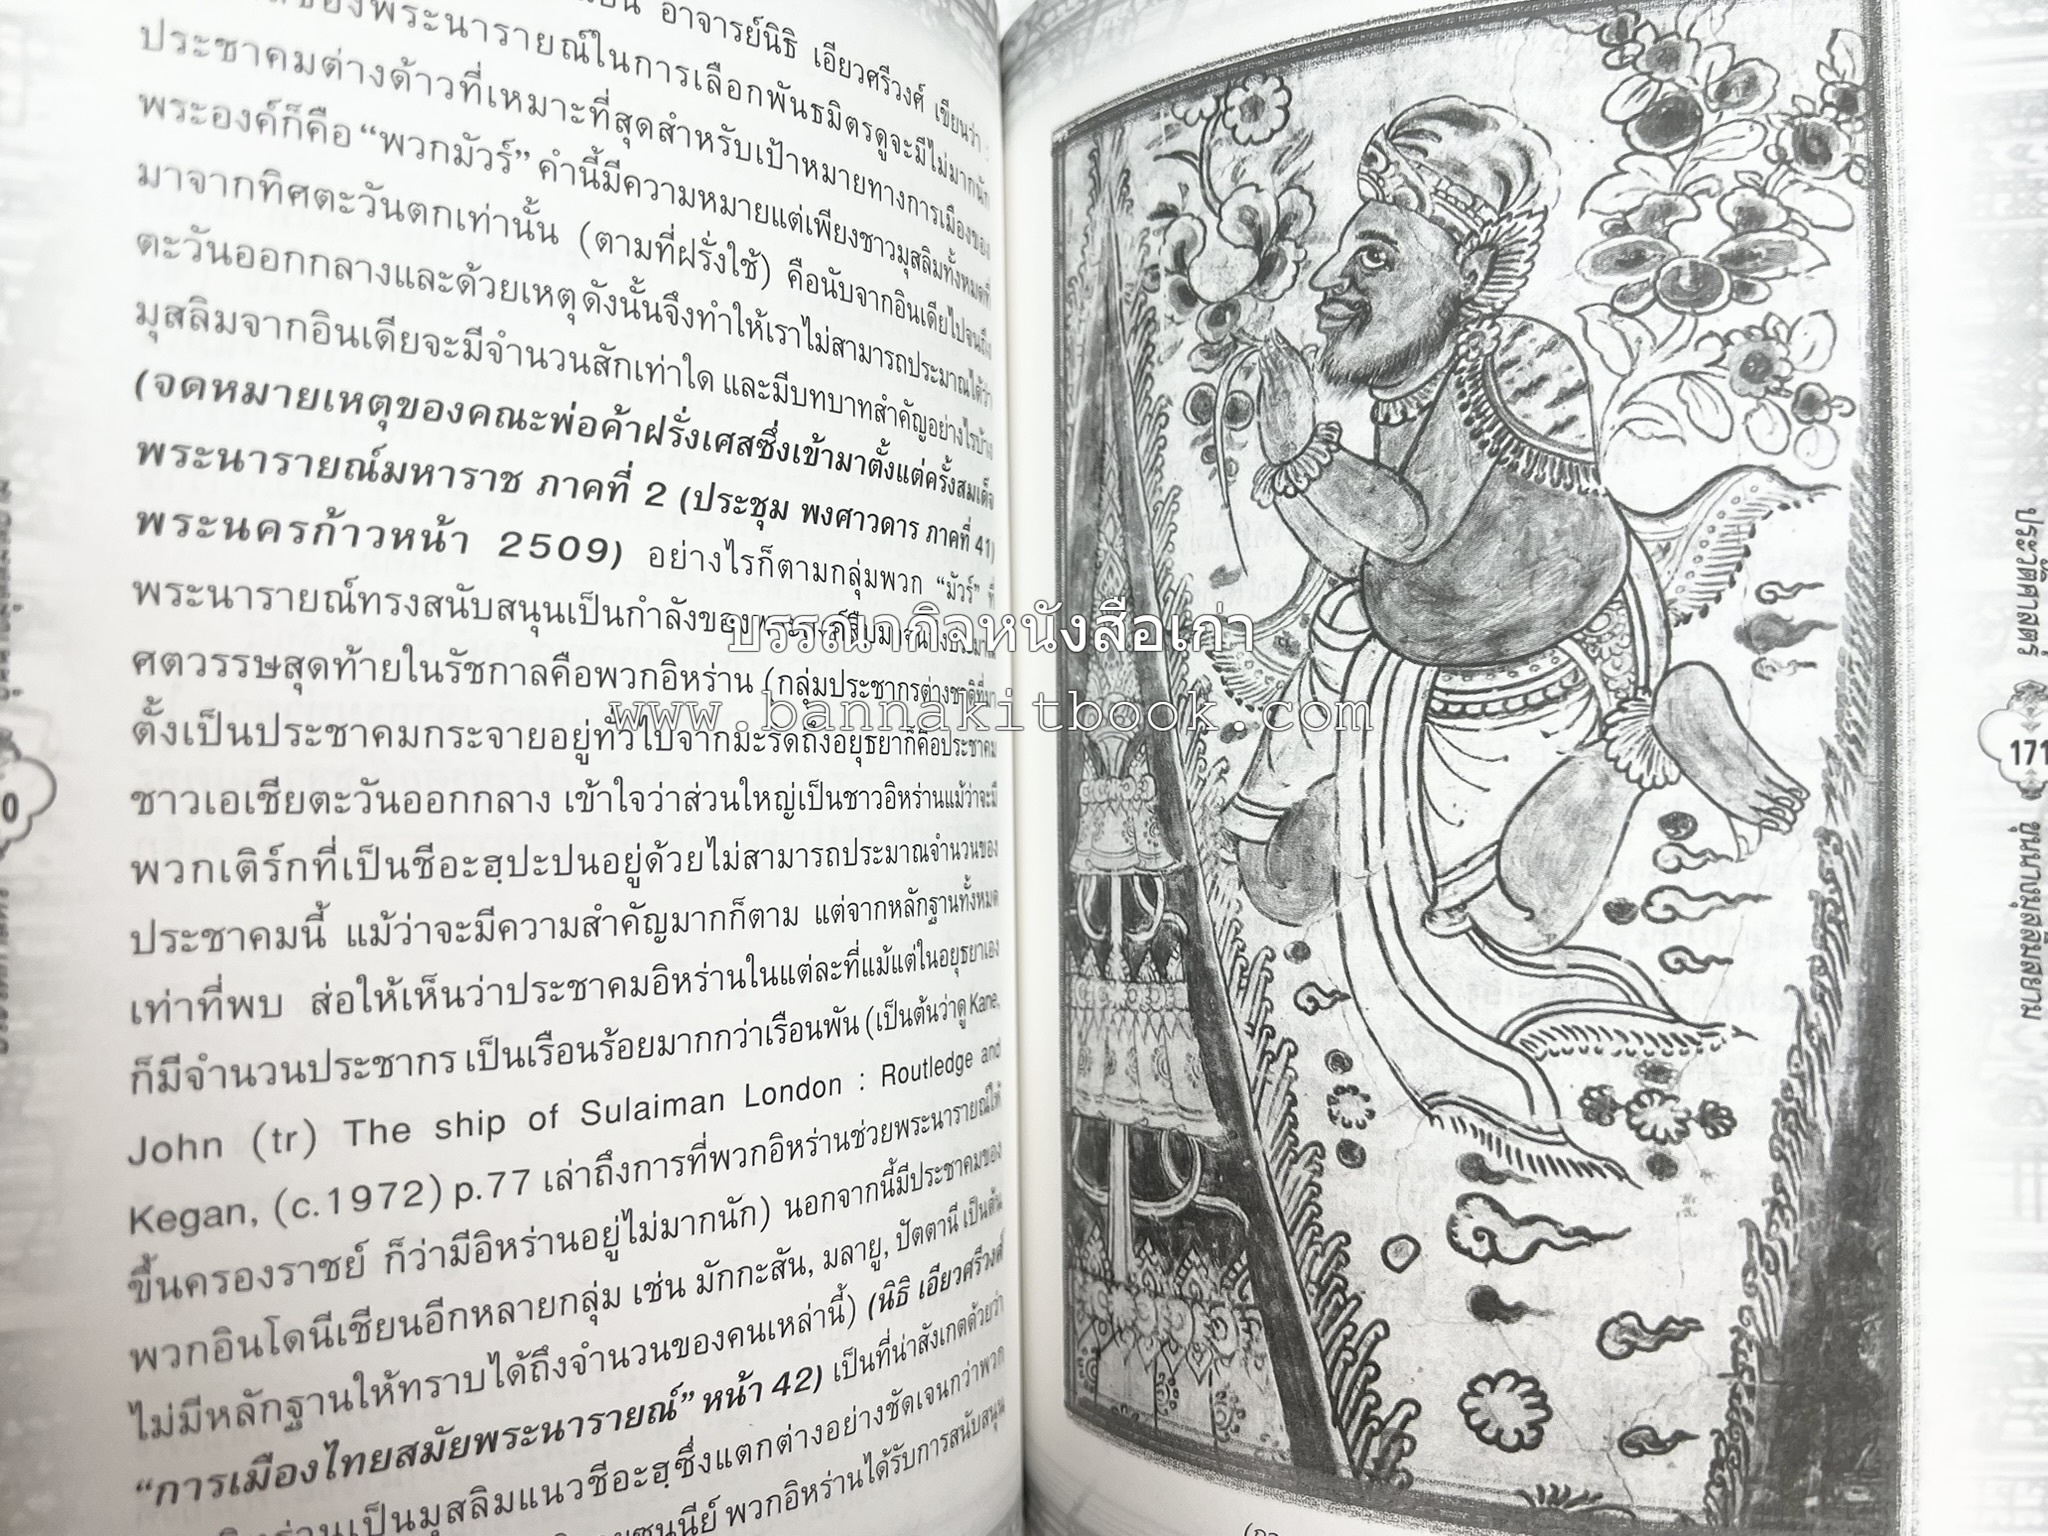 อาจารย์นิธิ เอียวศรีวงศ์ เขียนว่า
ของพระนารายณ์ในการเลือกพันธมิตรดูจะมีไม่มากนัก
ประชาคมต่างด้าวที่เหมาะที่สุดสำหรับเป้าหมายทางการเมืองของ
พระองค์ก็คือ “พวกมัวร์” คำนี้มีความหมายแต่เพียงชาวมุสลิมทั้งหมดที่
มาจากทิศตะวันตกเท่านั้น (ตามที่ฝรั่งใช้) คือนับจากอินเดียไปจนถึง
ตะวันออกกลางและด้วยเหตุดังนั้นจึงทำให้เราไม่สามารถประมาณได้ว่า
มุสลิมจากอินเดียจะมีจำนวนสักเท่าใด และมีบทบาทสำคัญอย่างไรบ้าง
(จดหมายเหตุของคณะพ่อค้าฝรั่งเศสซึ่งเข้ามาตั้งแต่ครั้งสมเด็จ
พระนารายณ์มหาราช ภาคที่ 2 (ประชุม พงศาวดาร ภาคที่ 41)
พระนครก้าวหน้า 2509) อย่างไรก็ตามกลุ่มพวก “มัวร์” ที่
พระนารายณ์ทรงสนับสนุนเป็นกำลังของ
ศตวรรษสุดท้ายในรัชกาลคือพวกอิหร่าน (กลุ่มประชากรต่างชาติที่มา
ตั้งเป็นประชาคมกระจายอยู่ทั่วไปจากมะริดถึงอยุธยาก็คือประชาคม
ชาวเอเชียตะวันออกกลาง เข้าใจว่าส่วนใหญ่เป็นชาวอิหร่านแม้ว่าจะมี
พวกเติร์กที่เป็นชีอะฮฺปะปนอยู่ด้วยไม่สามารถประมาณจำนวนของ
ประชาคมนี้ แม้ว่าจะมีความสำคัญมากก็ตาม แต่จากหลักฐานทั้งหมด
เท่าที่พบ ส่อให้เห็นว่าประชาคมอิหร่านในแต่ละที่แม้แต่ในอยุธยาเอง
ก็มีจำนวนประชากร เป็นเรือนร้อยมากกว่าเรือนพัน (เป็นต้นว่าดู Kane,
John (tr) The ship of Sulaiman London : Routledge and
Kegan, (c.1972) p.77 เล่าถึงการที่พวกอิหร่านช่วยพระนารายณ์ให้
ขึ้นครองราชย์ ก็ว่ามีอิหร่านอยู่ไม่มากนัก) นอกจากนี้มีประชาคมของ
พวกอินโดนีเชียนอีกหลายกลุ่ม เช่น มักกะสัน, มลายู, ปัตตานี เป็นต้น
ไม่มีหลักฐานให้ทราบได้ถึงจำนวนของคนเหล่านี้) (นิธิ เอียวศรีวงศ์
“การเมืองไทยสมัยพระนารายณ์” หน้า 42) เป็นที่น่าสังเกตด้วยว่า
เป็นมุสลิมแนวชีอะฮฺซึ่งแตกต่างอย่างชัดเจนกว่าพวก
ซุนนีย์ พวกอิหร่านได้รับการสนับสนุน
บรรณากิจหนังสือเก่า
www.bannakitbook.com
ประวัติศาสตร์
171
ขุนนางมุสลิมสยาม